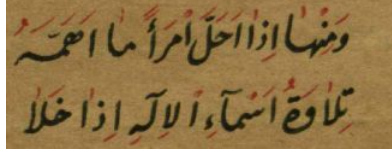 وَمِنْهَا اِذَا اَحَلَّ اَمْرَأً مَا اَهَمَّهُ
تِلَاوَةُ اَسْمَآءِ الْاِلٰهِ اِذَا خَلَا